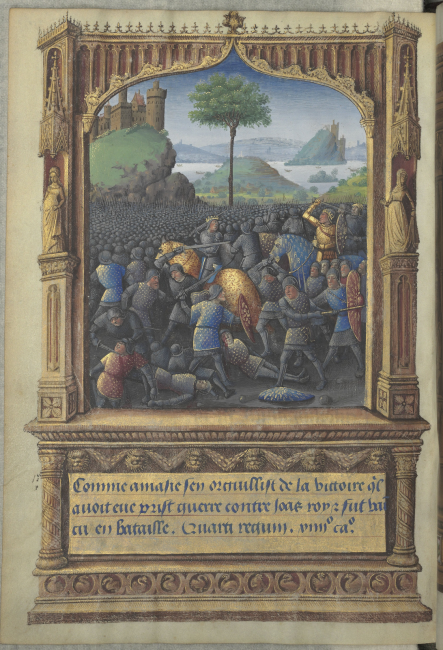 Comme amasie sen orguillist de la victoire ql
auoit eue prist guerre contre Joas roy et fut vai
cu en bataille. Quarti regum. xiiii° ca°.